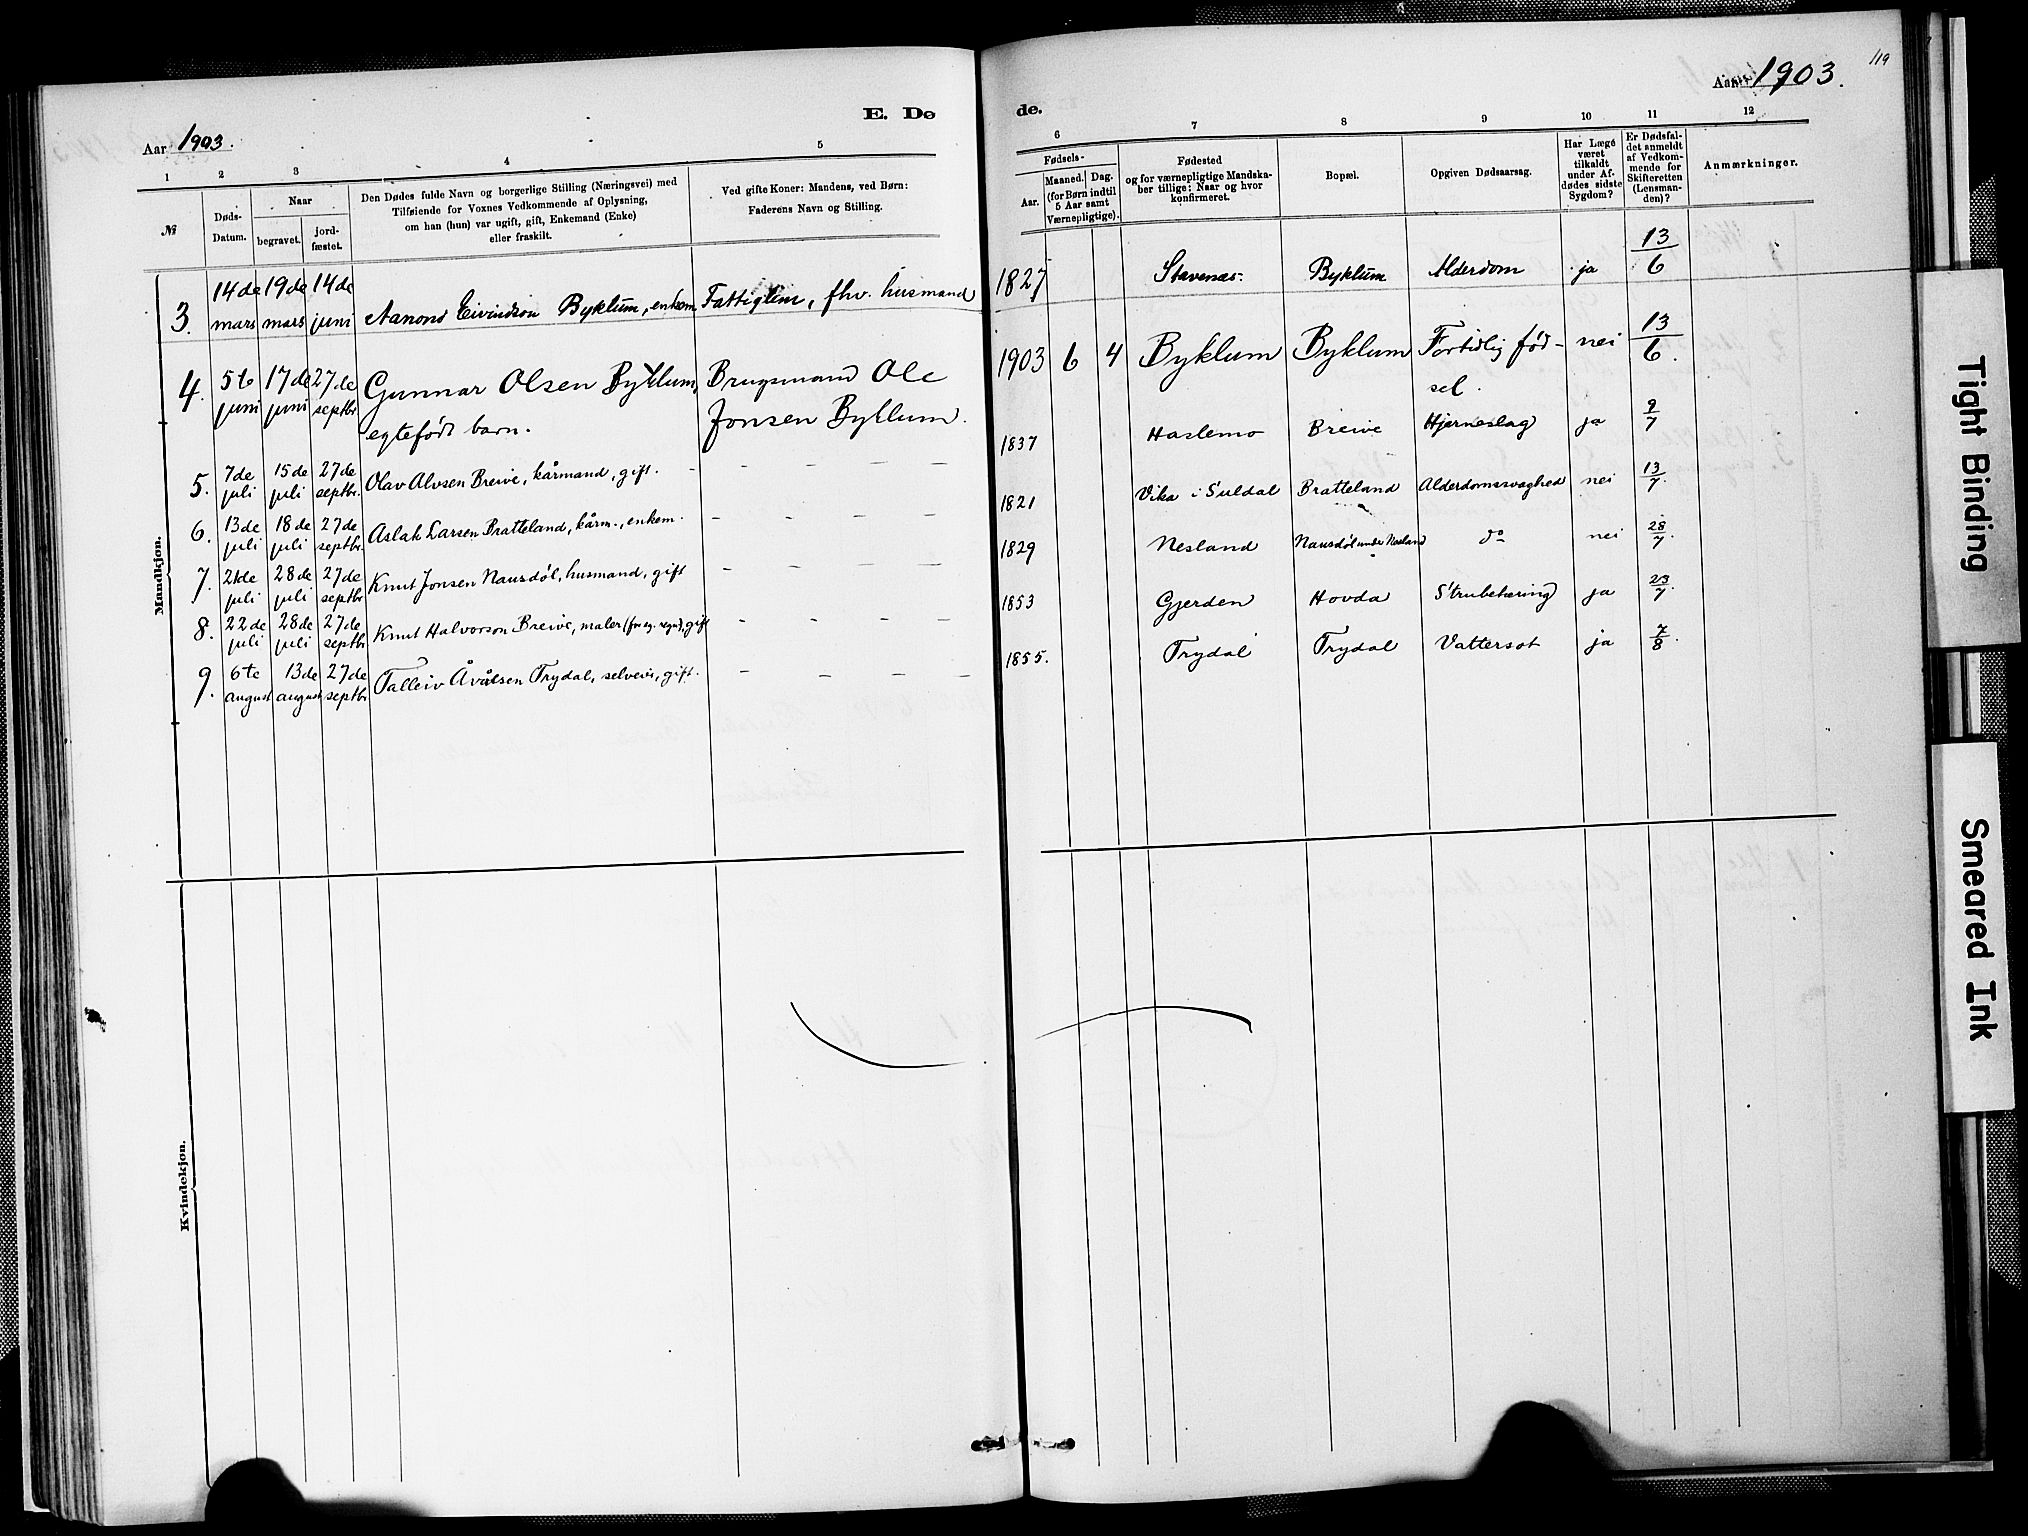 Aar 1903.
E. Dø
1
2
3
4
5
№
Døds-
Datum.
Naar
begravet.
jord-
fæstet.
Den Dødes fulde Navn og borgerlige Stilling (Næringsvei) med
Tilføiende for Voxnes Vedkommende af Oplysning,
om han (hun) var ugift, gift, Enkemand (Enke)
eller fraskilt.
Ved gifte Koner: Mandens, ved Børn:
Faderens Navn og Stilling.
Mandkjøn.
3. 14de mars 19de mars 14de juni Aanond Eivindson Byklum, enkem. Fattiglem, fhv. husmand
4. 5te juni 17de juni 27de septbr Gunnar Olsen Byklum, Brugsmand Ole
egtefødt barn. Jonsen Byklum.
5. 7de juli 15de juli 27de septbr. Olav Alvsen Breive, kårmand, gift. - - - - -
6. 13de juli 18de juli 27de septbr. Aslak Larsen Bratteland, kårm., enkem. - - - -
7. 21de juli 28de juli 27de septbr. Knut Jonsen Nausdøl, husmand, gift - - - -
8. 22de juli 28de juli 27de septbr. Knut Halvorson Breive, maler, gift - - - -
9. 6te august 13de august 27de septbr. Talleiv Åvålsen Trydal, selveier, gift. - - - -
Kvindekjøn.
119
Aar 1903.
de.
6
7
8
9
10
11
12
Fødsels-
Aar.
Maaned. Dag.
(for Børn indtil
5 Aar samt
Værnepligtige).
Fødested
og for værnepligtige Mandska-
ber tillige: Naar og hvor
konfirmeret.
Bopæl.
Opgiven Dødsaarsag.
Har Læge
været
tilkaldt
under Af-
dødes sidste
Sygdom?
Er Dødsfal-
det anmeldt
af Vedkom-
mende for
Skifteretten
(Lensman-
den)?
Anmærkninger.
1827 Stavenæs. Byklum Alderdom ja 13/6
1903 6 4 Byklum Byklum Fortidlig fød- nei 13/6.
sel.
1837 Haslemo Breive Hjerneslag ja 9/7
1821 Vika i Suldal Bratteland Alderdomssvaghed nei 13/7.
1829 Nesland Nausdøl under Nesland do nei 28/7.
1853 Gjerden Hovda Strubetæring ja 23/7.
1855. Trydal Trydal Vattersot ja 7/8.
Tight Binding
Smeared Ink